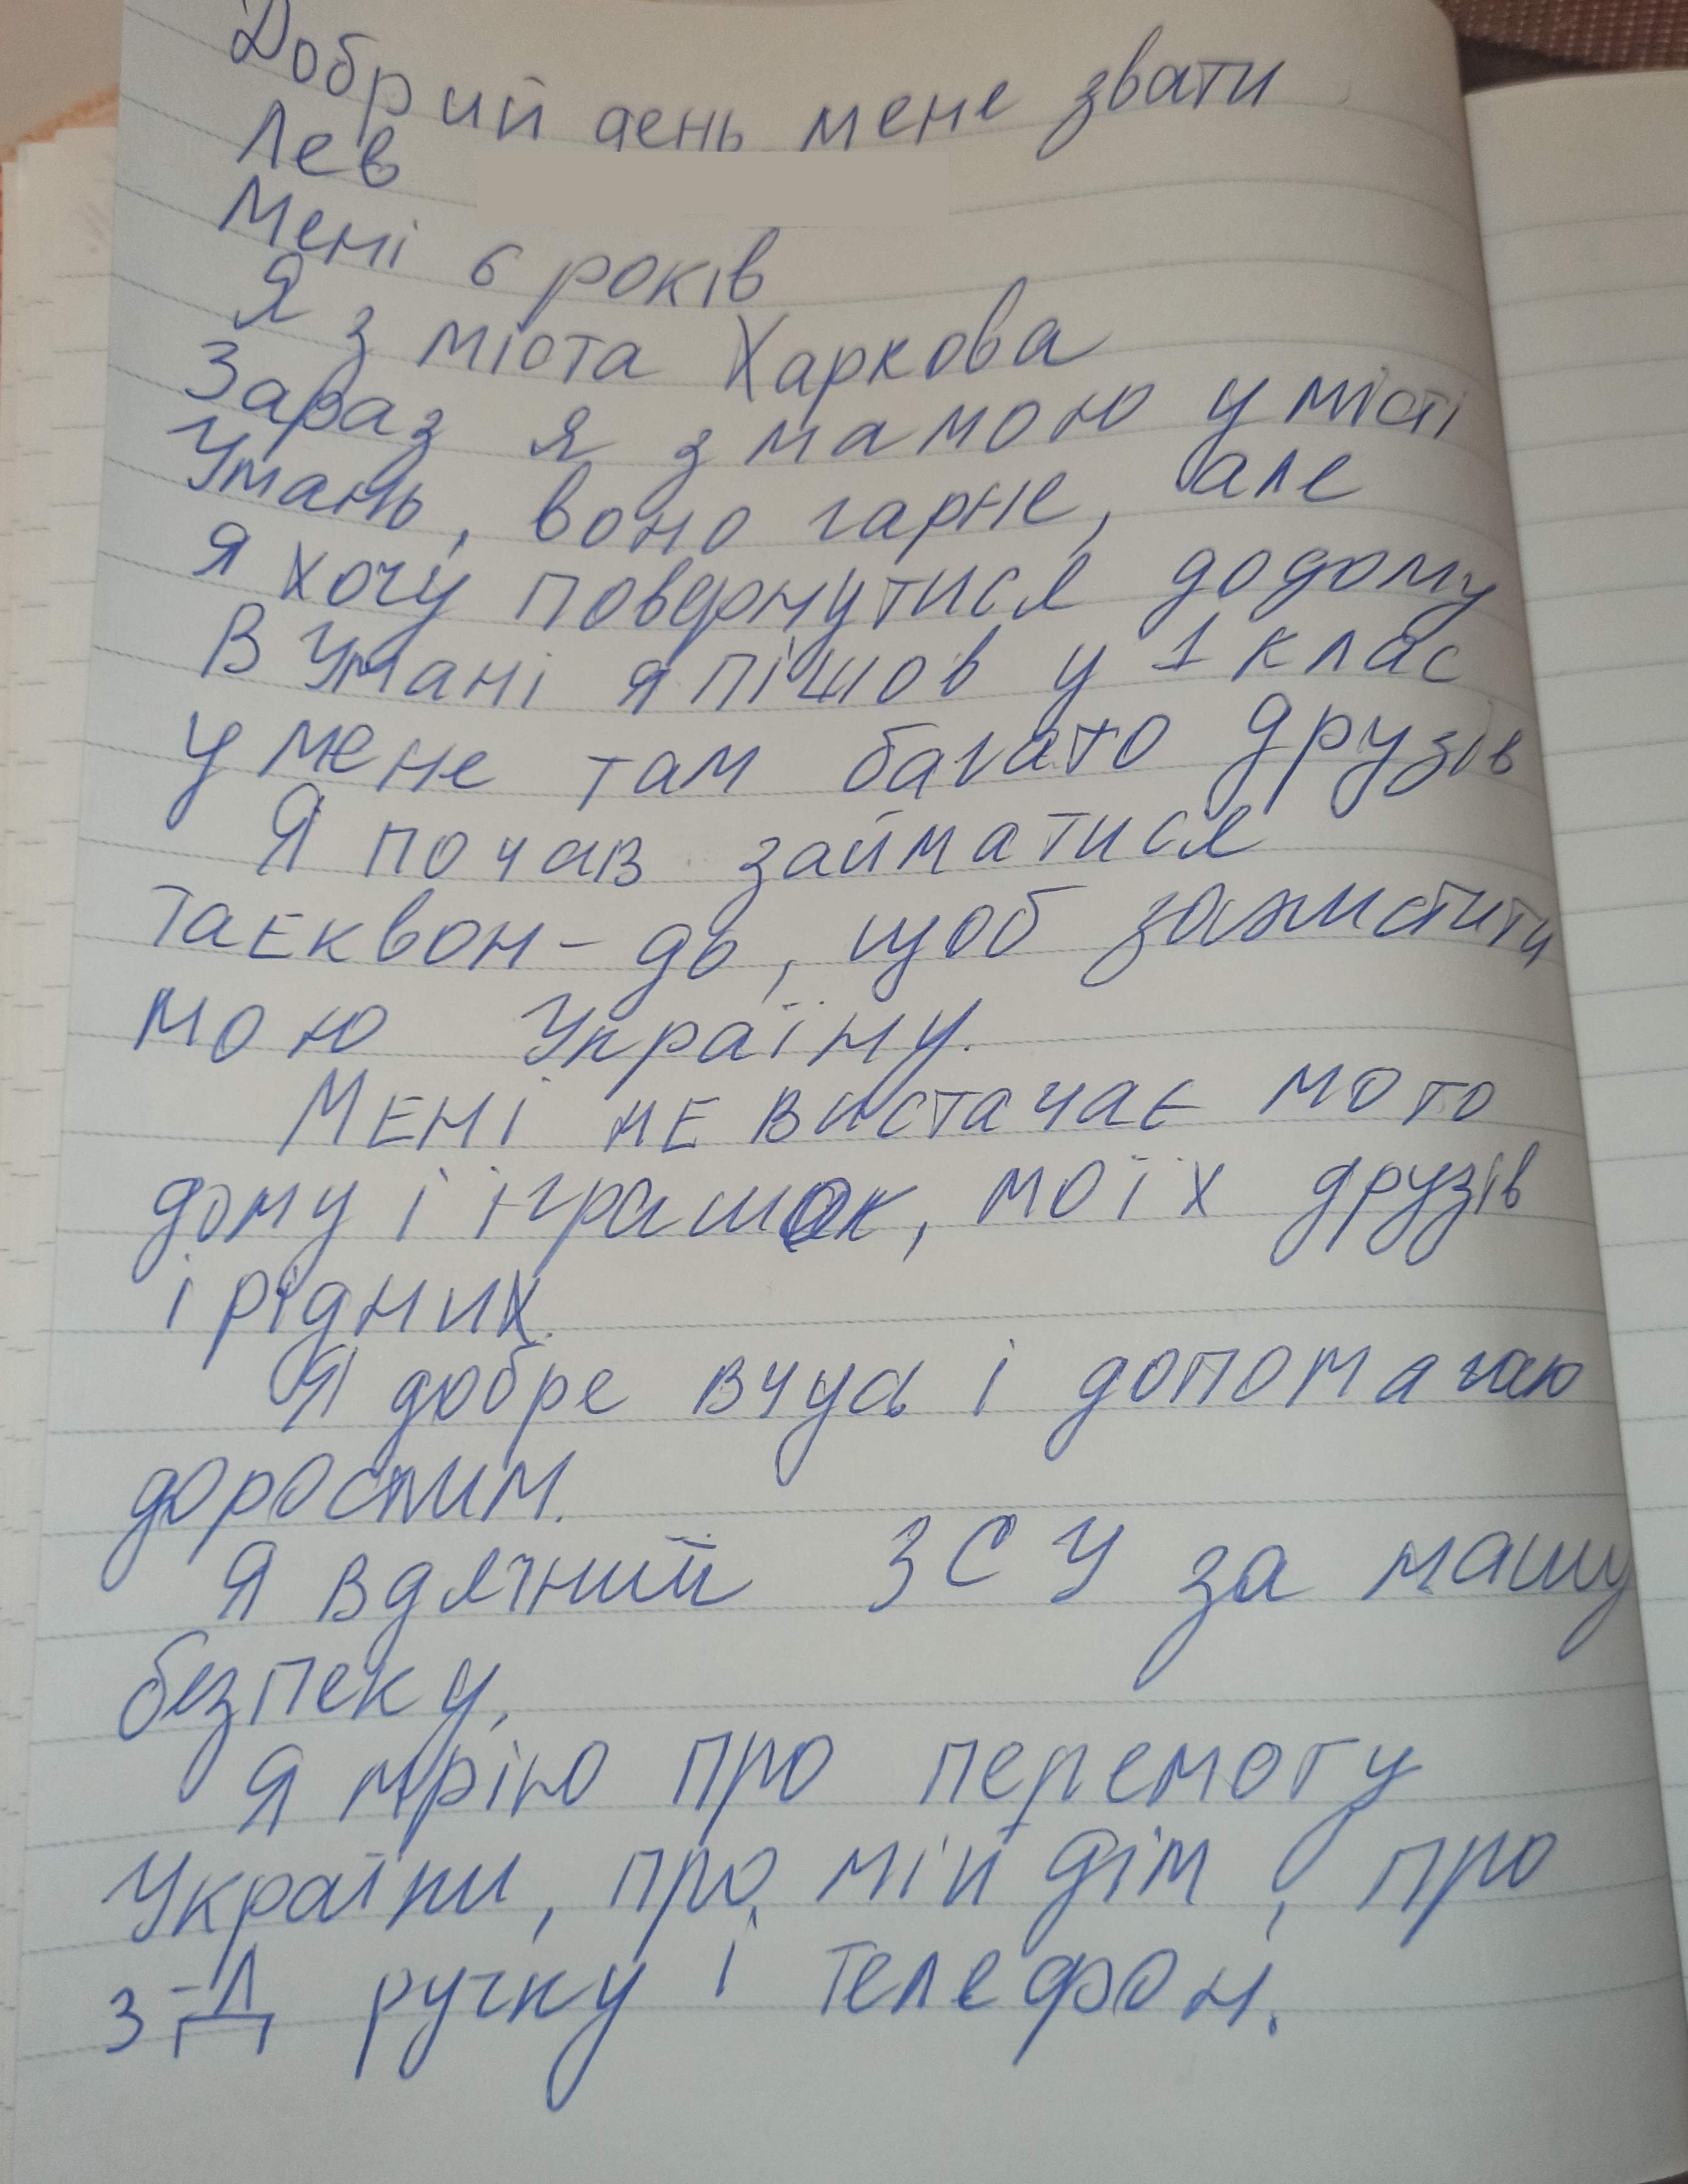 Добрий день мене звати
Лев
Мені 6 років
Я з міста Харкова
Зараз я з мамою у місті
Умань, воно гарне, але
я хочу повернутися додому
В Умані я пішов у 1 клас
у мене там багато друзів
Я почав займатися
таєквон-до, щоб захистити
мою Україну.
Мені не вистачає мого
дому і іграшок, моїх друзів
і рідних.
Я добре вчусь і допомагаю
дорослим.
Я вдячний ЗСУ за нашу
безпеку.
Я мрію про перемогу
України, про мій дім, про
3-Д ручку і телефон.